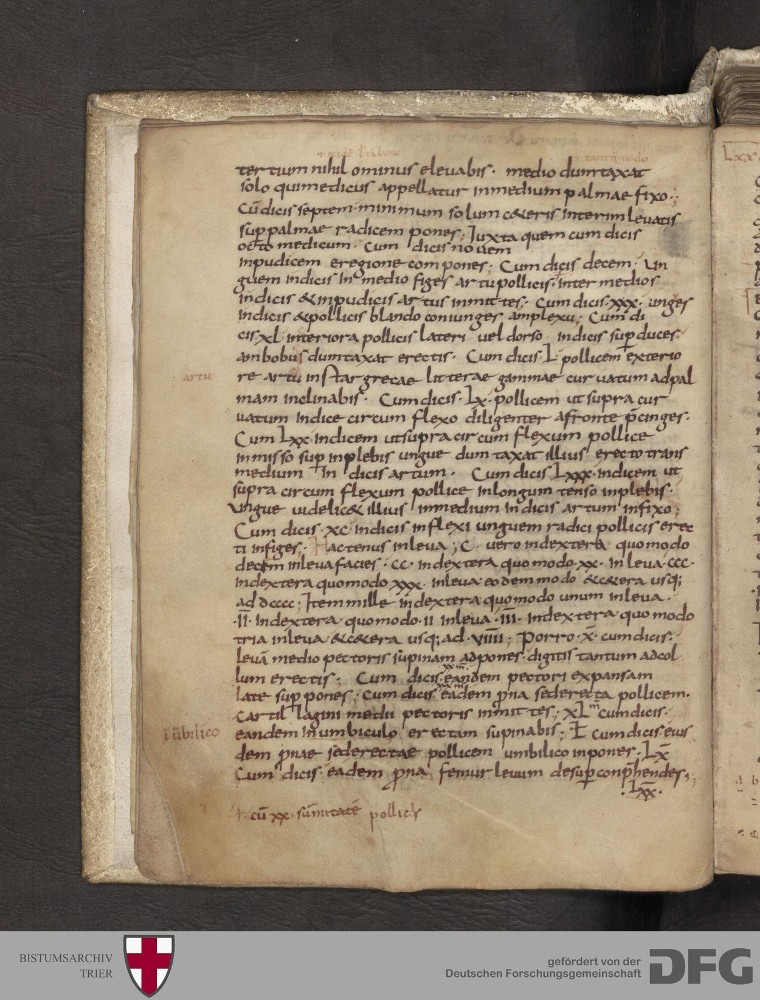 tertium nihil ominus elevabis · medio dumtaxat
solo qui medicus appellatur in medium palmae fixo ·
Cū dicis septem · minimum solum c&eris interim levatis
sup palmae radicem pones ; Iuxta quem cum dicis
octo medicum · Cum dicis novem
inpudicem e regione compones ; Cum dicis decem · Un
guem indicis in medio figes artu pollicis · Inter medios
indicis & inpudicis artus inmittes ; Cum dicis · xxx · unges
indicis & pollicis blando coniunges amplexu ; Cum di
cis xl interiora pollicis lateri vel dorso indicis sup duces ·
ambobus dumtaxat erectis · Cum dicis L pollicem exterio
artu
re artu instar grecae litterae gammae curvatum ad pal
mam inclinabis · Cum dicis · Lx · pollicem ut supra cur
vatum indice circum flexo diligenter a fronte p̄cinges ·
Cum Lxx · indicem ut supra circum flexum pollice
inmisso sup inplebis ungue dum taxat illius erecto trans
medium in dicis artum · Cum dicis Lxxx · indicem ut
supra circum flexum pollice in longum tenso inplebis ·
Ungue videlic& illius in medium indicis artum infixo ;
Cum dicis · xc · indicis inflexi unguem radici pollicis erec
ti infiges · Hactenus in leva ; C · vero in dextera quomodo
decem in leva facies · cc · in dextera quomodo · xx · in leva · ccc ·
in dextera quomodo xxx · in leva eodem modo & c&era usq;
ad dcccc ; Item mille in dextera quomodo unum in leva ·
· II · in dextera quomodo · II in leva · III · in dextera quomodo
tria in leva & c&era usq; ad · VIIII · Porro · x · cum dicis ·
levā medio pectoris supinam adpones · digitis tantum ad col
lum erectis ; Cum dicis eandem pectori expansam
late sup pones · Cum dicis eadem p̱na sed erecta pollicem ·
cartil lagini medii pectoris inmittes ; xL cum dicis ·
In ūbilico
eandem in umbiculo erectam supinabis ; L cum dicis eius
dem p̱nae sed erectae pollicem umbilico inpones · Lx
Cum dicis eadem p̱na femur levum desup conp̱hendes ;
· Lxx ·
cū xx · sūmitatē pollicis
BISTUMSARCHIV
TRIER
gefördert von der
Deutschen Forschungsgemeinschaft
DFG